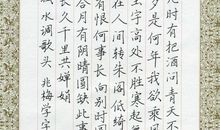 几时有把酒问青天不
夕是何年我欲乘风
玉宇高处不胜寒起
在人间转朱阁低绮
有恨何事长向别时
合月有阴晴圆缺此事
长久千里共婵娟
水调歌头 兆梅学字